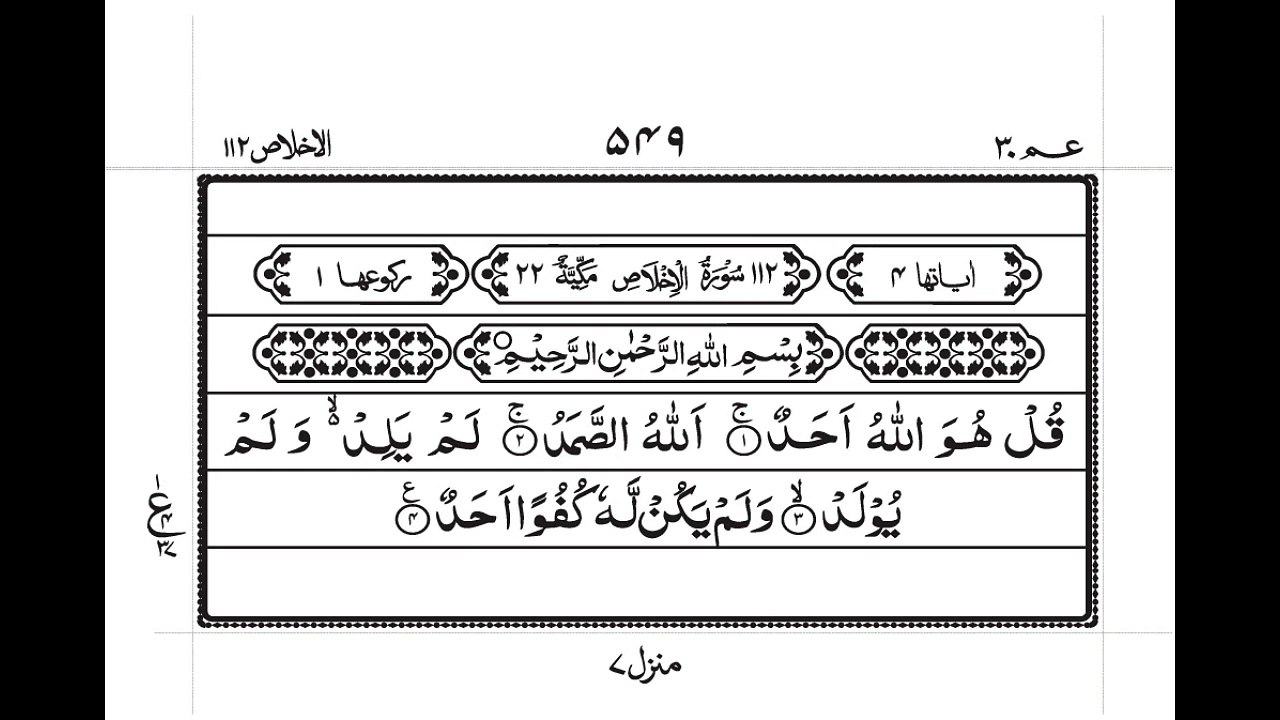 عـم ٣٠ ۵۴۹ الاخلاص ١١٢
اٰیاتها ۴ ١١٢ سُوْرَةُ الْاِخْلَاصِ مَكِّيَّةٌ ٢٢ رکوعها ١
بِسْمِ اللّٰهِ الرَّحْمٰنِ الرَّحِيْمِ○
قُلْ هُوَ اللّٰهُ اَحَدٌ ۚ﴿١﴾ اَللّٰهُ الصَّمَدُ ۚ﴿٢﴾ لَمْ يَلِدْ ۙ۬ وَ لَمْ
يُوْلَدْ ۙ﴿٣﴾ وَلَمْ يَكُنْ لَّهٗ كُفُوًا اَحَدٌ ﴿۴﴾ ع
١
ع ۴
٣٧
منزل ٧